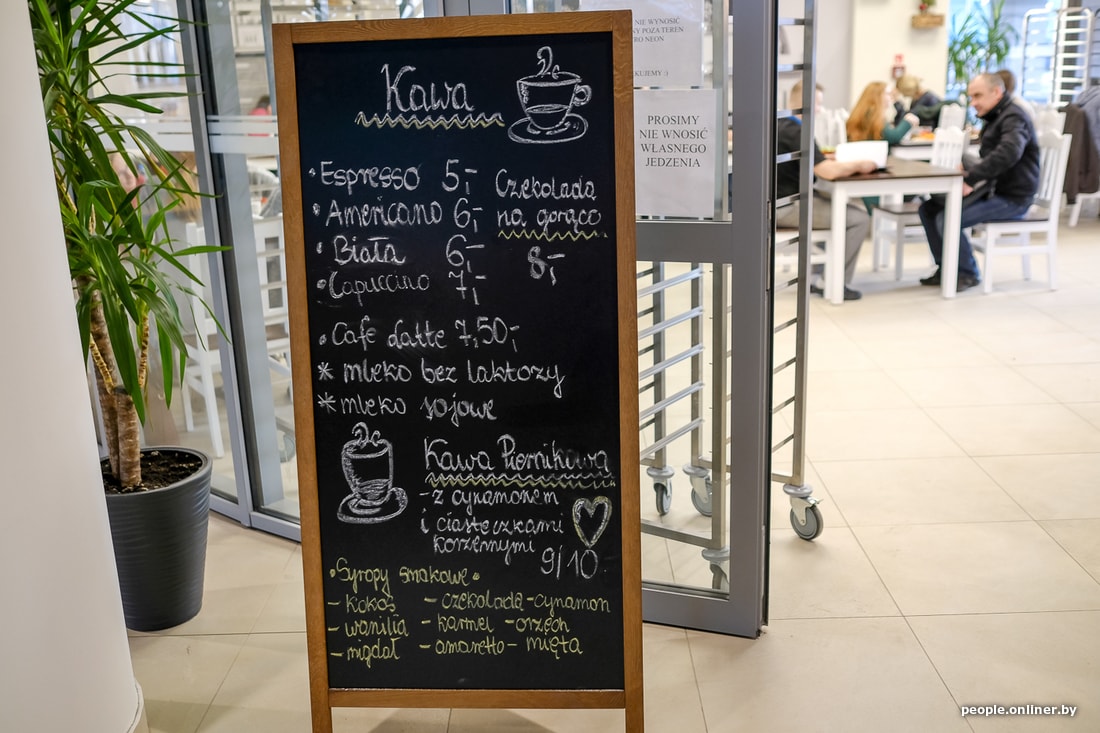 Kawa
• Espresso 5,-
• Americano 6,-
• Biała 6,-
• Capuccino 7,-
Czekolada
na gorąco
8,-
• Cafe datte 7,50,-
* mleko bez laktozy
* mleko sojowe
Kawa Piernikowa
- z cynamonem
i ciasteczkami
korzennymi
9/10
• Syropy smakowe •
- kokos
- wanilia
- migdał
- czekolada - cynamon
- karmel - orzech
- amaretto - mięta
NIE WYNOSIĆ
POZA TEREN
NEON
PROSIMY
NIE WNOSIĆ
WŁASNEGO
JEDZENIA
people.onliner.by